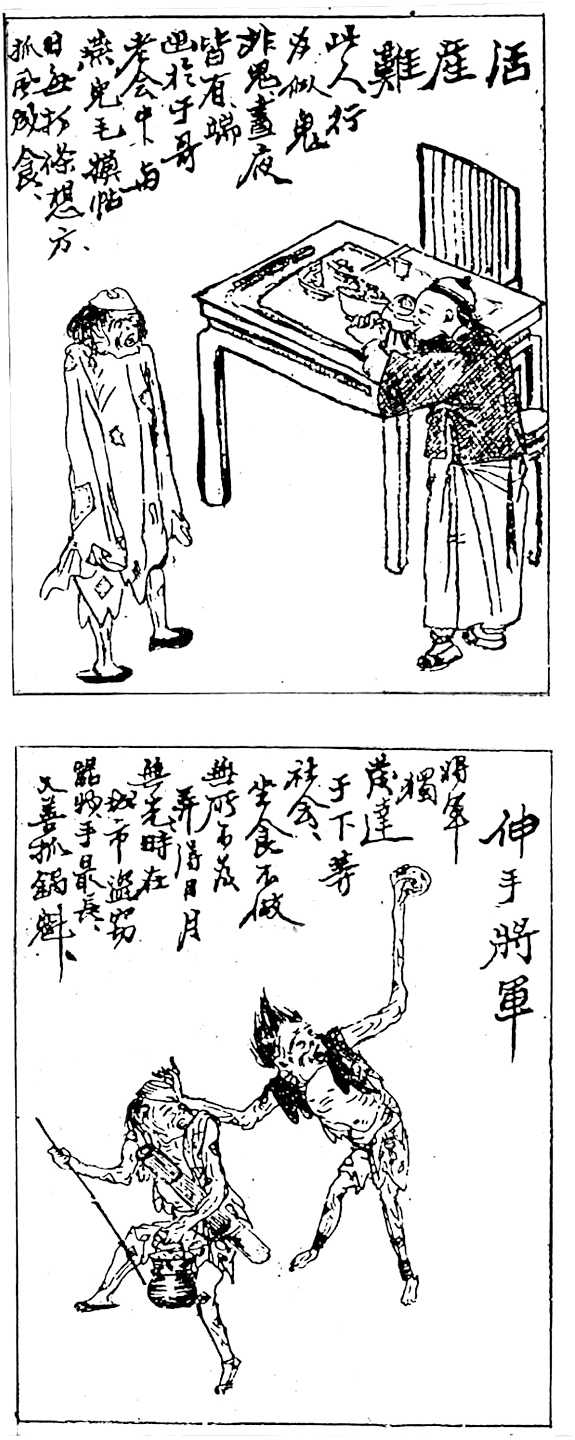 活產難
此人行
为似鬼
非鬼晝夜
皆有端
于哥
老会中与
兒毛摸帖
日每打條想方、
抓成食、
伸手將軍
將軍
獨
發達
于下等
社会、
坐食不做
無所不
弄得日月
無光時在
城市盜窃
器物手最長、
又善抓鍋魁、